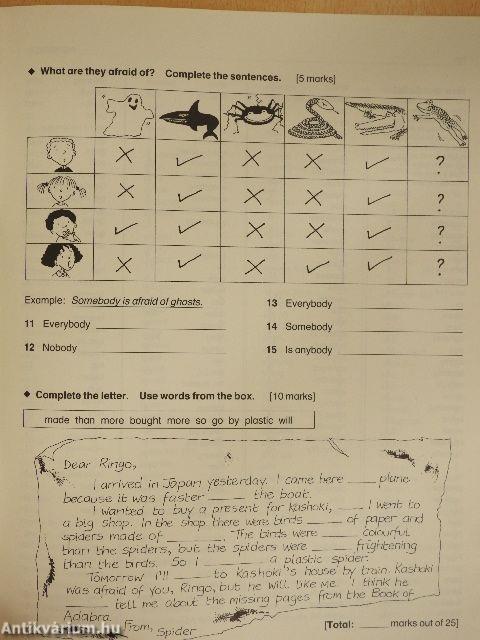 ◆ What are they afraid of? Complete the sentences. [5 marks]
?
?
?
?
Example: Somebody is afraid of ghosts.
11 Everybody
12 Nobody
13 Everybody
14 Somebody
15 Is anybody
◆ Complete the letter. Use words from the box. [10 marks]
made than more bought more so go by plastic will
Dear Ringo,
I arrived in Japan yesterday. I came here ____ plane
because it was faster ____ the boat.
I wanted to buy a present for Kashoki, ____ I went to
a big shop. In the shop there were birds ____ of paper and
spiders made of ____. The birds were ____ colourful
than the spiders, but the spiders were ____ frightening
than the birds. So I ____ a plastic spider.
Tomorrow I'll ____ to Kashoki's house by train. Kashoki
was afraid of you, Ringo, but he will like me. I think he
____ tell me about the missing pages from the Book of
Adabra.
From, Spider
[Total: ____ marks out of 25]
Antikvárium.hu